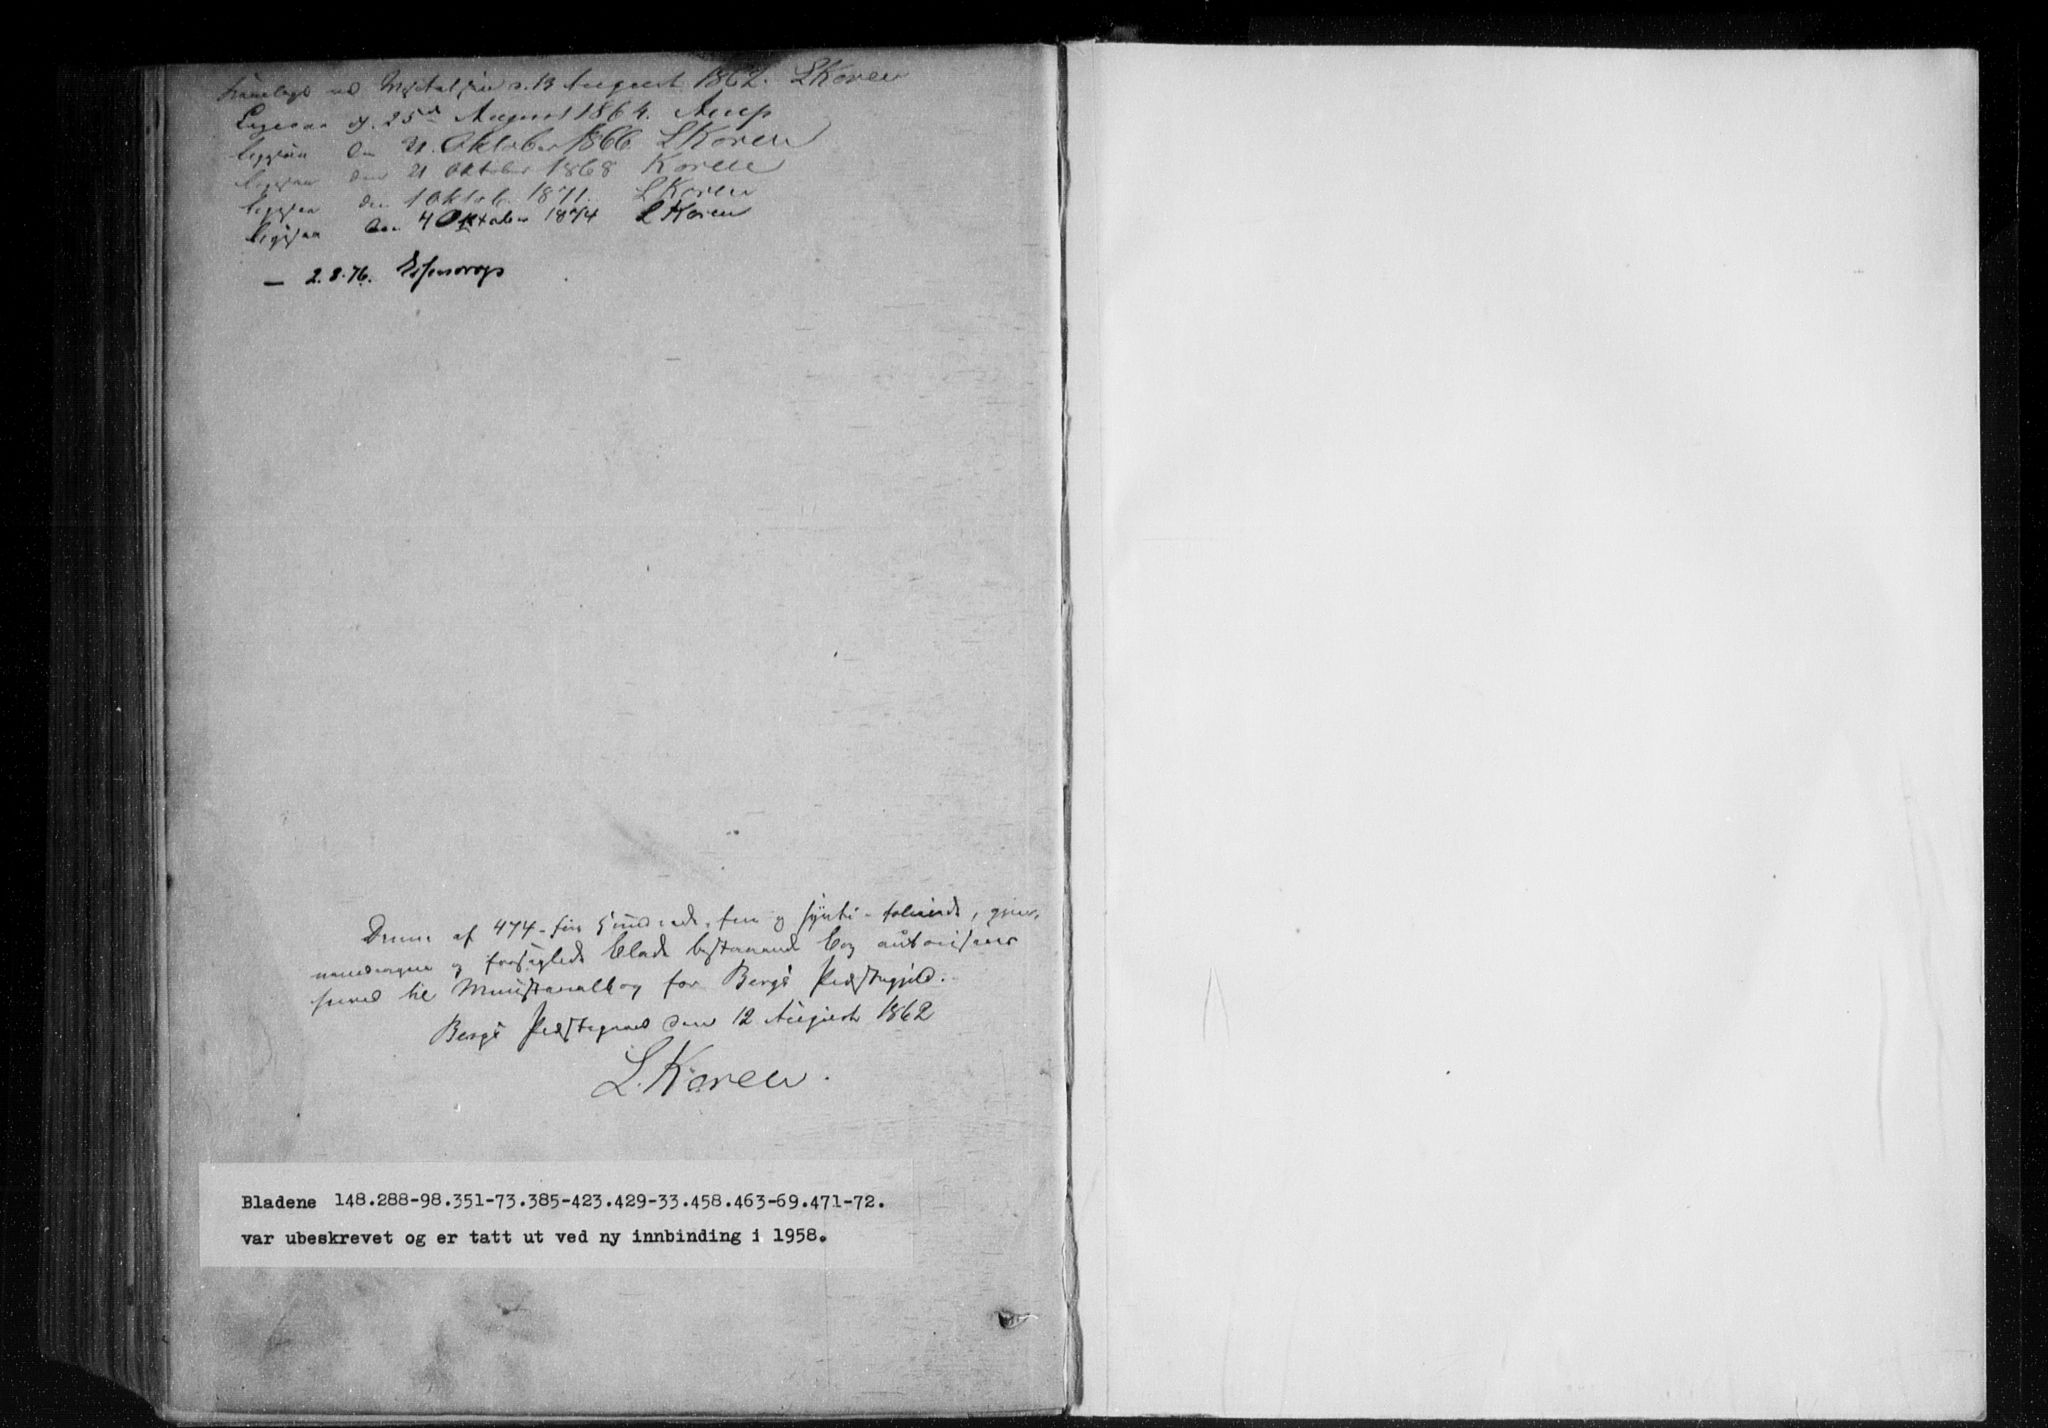 Fremlagt ved Visitatsen d. 13 August 1862. L Koren
Ligesaa d. 25de August 1864. Aup
ligesaa den 21. Oktober 1866 L Koren
ligesaa den 21 Oktober 1868 Koren
ligesaa den 1 Oktob. 1871. L Koren
ligesaa den 4 Oktober 1874 L Koren
— 2.8.76. Essendrop
Denne af 474 - fire Hundrede, fire og syvti - folierede, gjen-
nemdragne og forseglede Blade bestaaende Bog autoriseres
herved til Ministerialbog for Bergs Præstegjeld.
Bergs Præstegaard den 12 August 1862
L. Koren.
Bladene 148.288-98.351-73.385-423.429-33.458.463-69.471-72.
var ubeskrevet og er tatt ut ved ny innbinding i 1958.